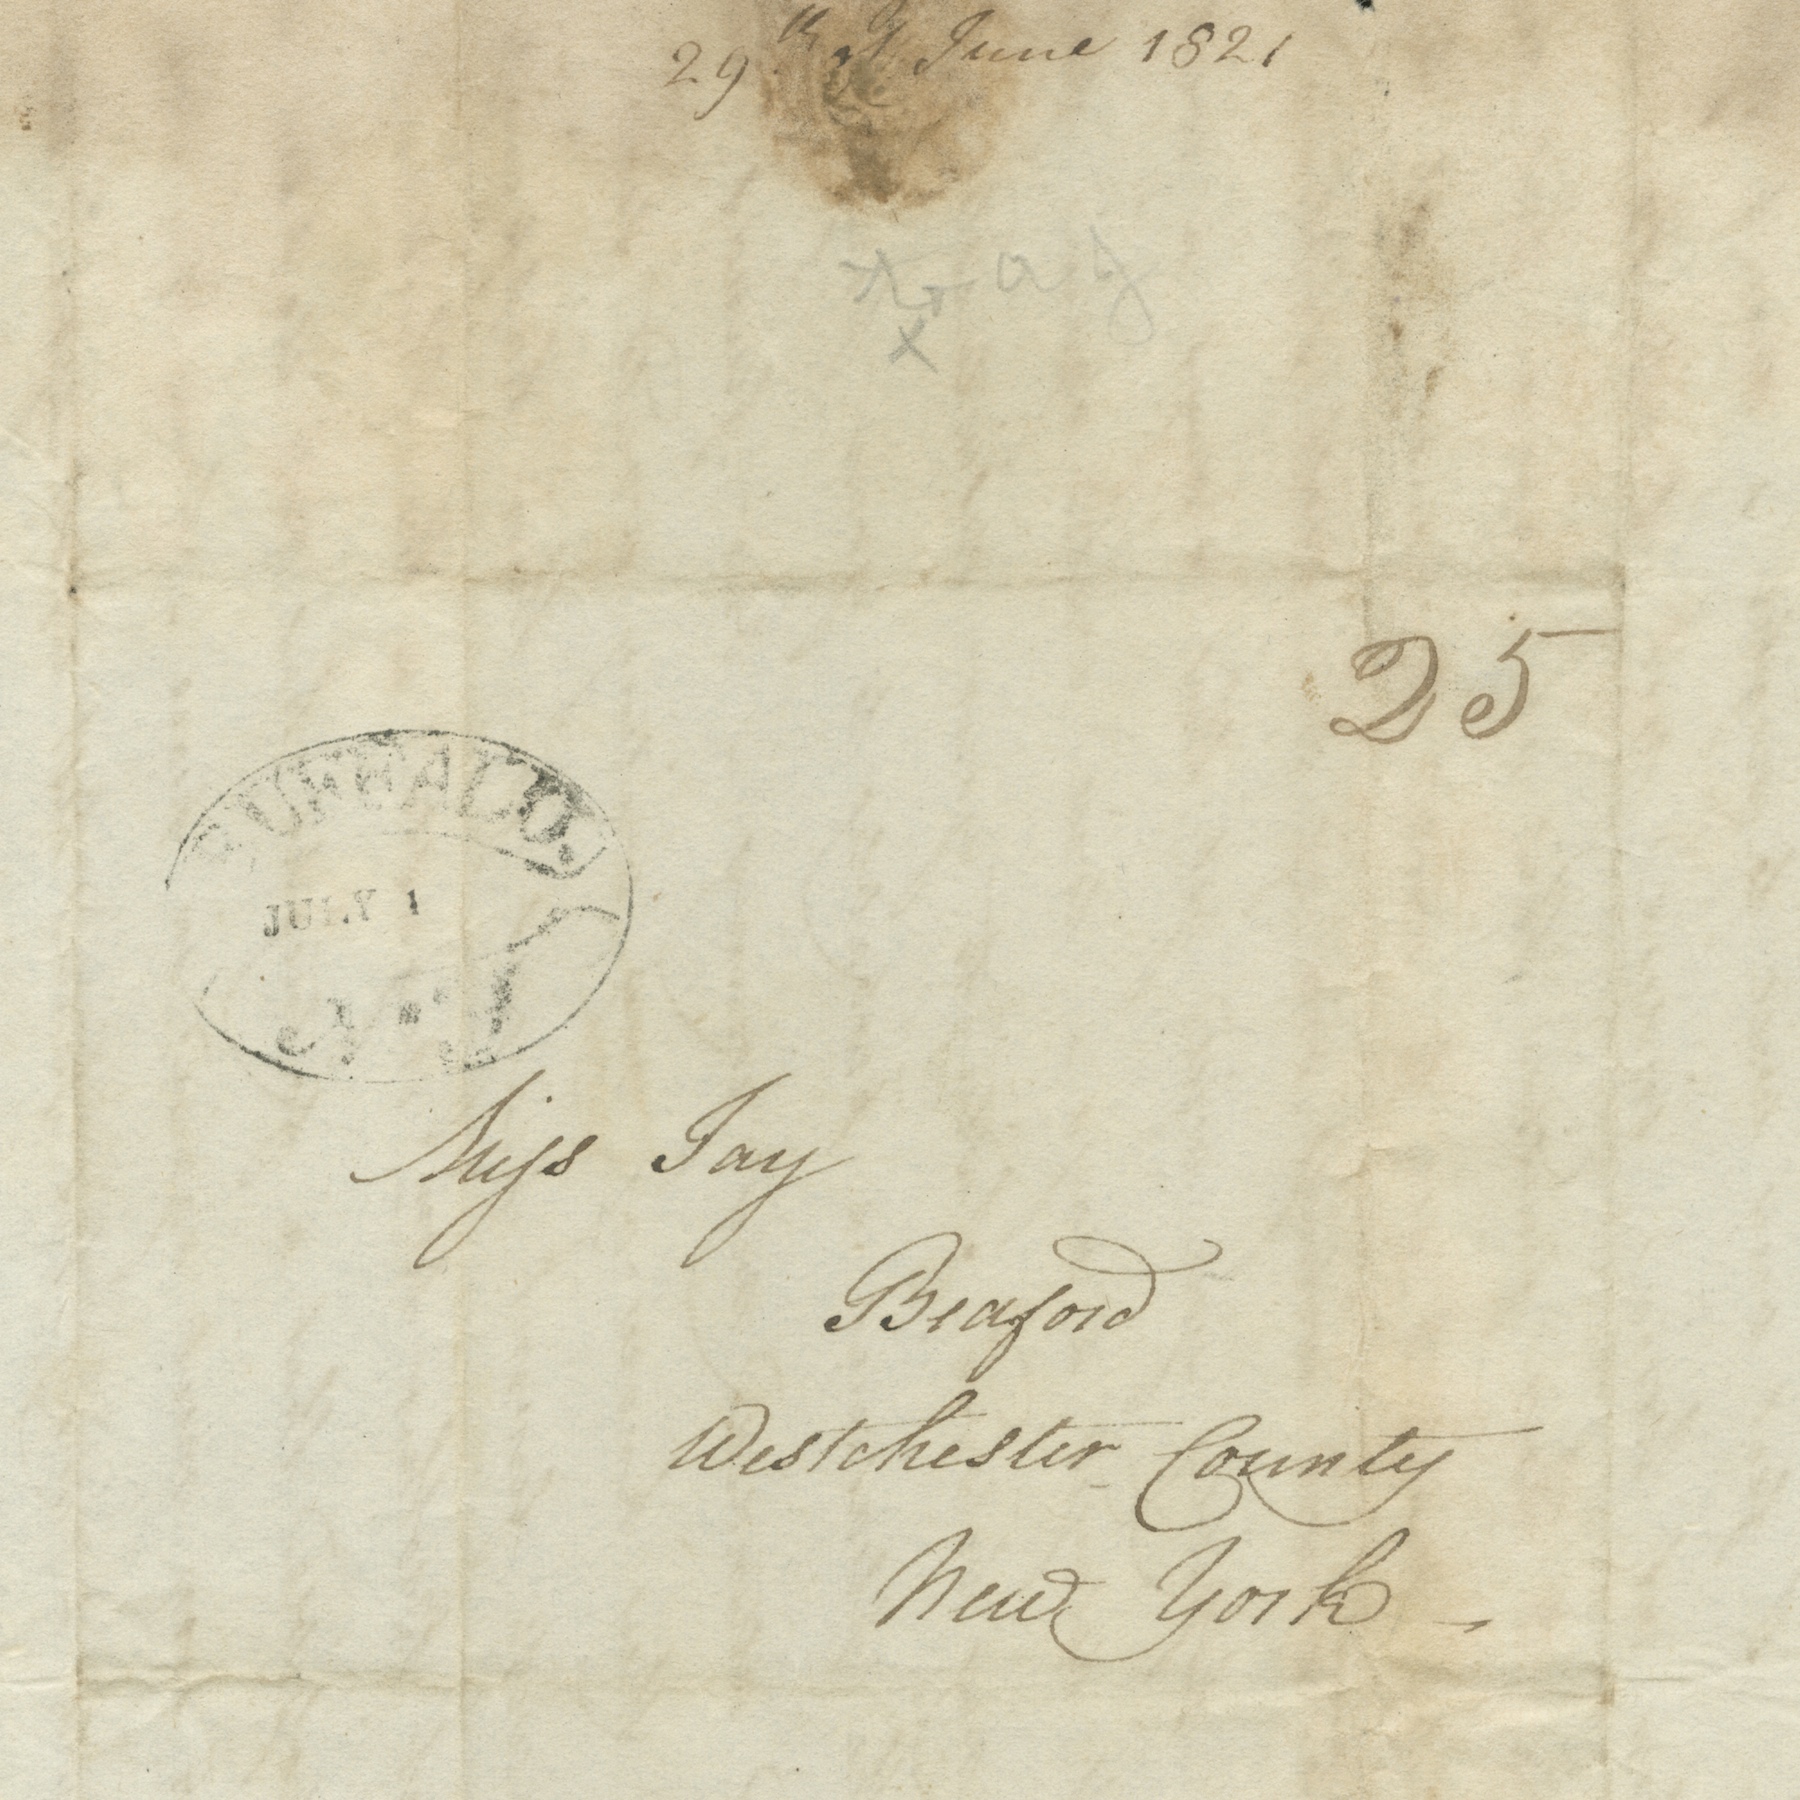 29th of June 1821
25
BUFFALO.
JULY 1
N.Y
Miss Jay
Beaford
Westchester County
New York